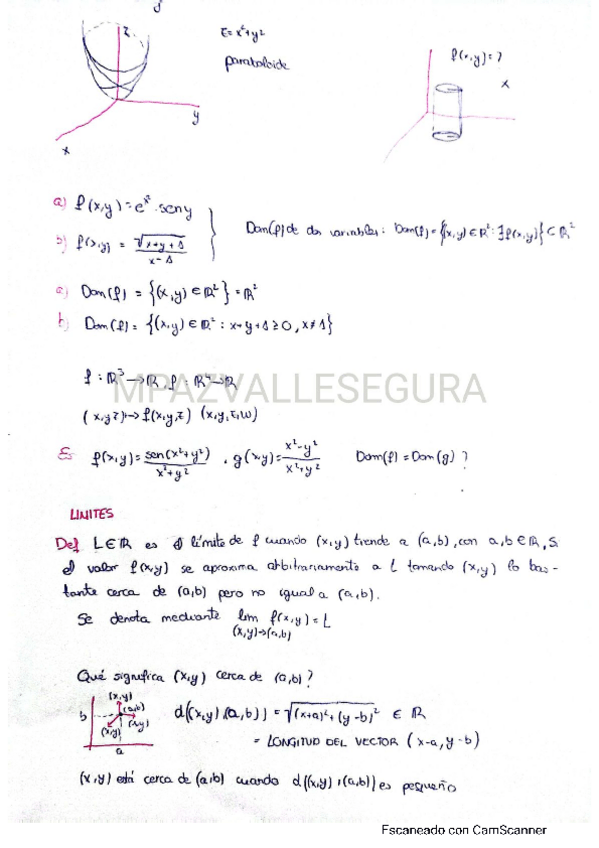 z
z=x²+y²
paraboloide
f(x,y)=?
x
y
x
a) f(x,y)=e^{x²}·seny
b) f(x,y) = √(x+y+1) / (x-1)
Dom(f) de dos variables: Dom(f)={(x,y)∈ℝ²:∃f(x,y)}⊂ℝ²
a) Dom(f) = {(x,y)∈ℝ²}=ℝ²
b) Dom(f)= {(x,y)∈ℝ² : x+y+1≥0, x≠1}
f:ℝ³→ℝ, f:
MPAZVALLESEGURA
(x,y,z)↦f(x,y,z) (x,y,z,w)
Ej f(x,y)= sen(x²+y²) / (x²+y²) , g(x,y)= (x²-y²) / (x²+y²) Dom(f)=Dom(g)?
LIMITES
Def L∈ℝ es el límite de f cuando (x,y) tiende a (a,b), con a,b∈ℝ, si
el valor f(x,y) se aproxima arbitrariamente a L tomando (x,y) lo bas-
tante cerca de (a,b) pero no igual a (a,b).
Se denota mediante lim f(x,y)=L
(x,y)→(a,b)
Qué significa (x,y) cerca de (a,b)?
(x,y)
b (a,b)
(x,y)
(x,y)
a
d((x,y),(a,b)) = √((x+a)²+(y-b)²) ∈ ℝ
= LONGITUD DEL VECTOR (x-a,y-b)
(x,y) está cerca de (a,b) cuando d((x,y),(a,b)) es pequeño
Escaneado con CamScanner